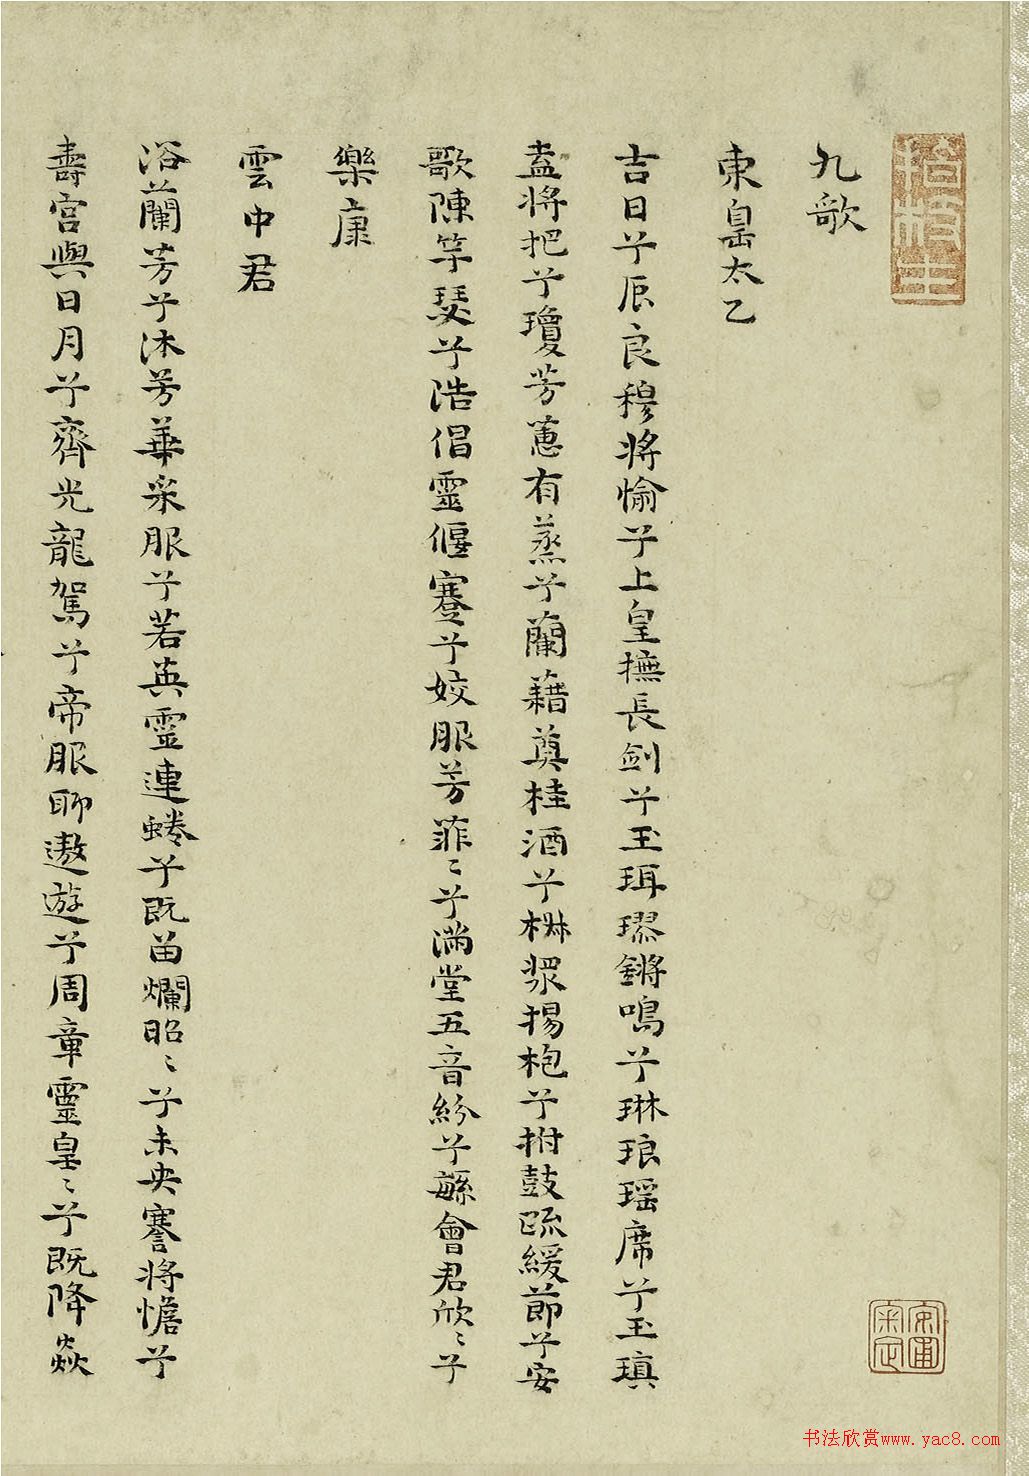 九歌
東皇太乙
吉日兮辰良穆將愉兮上皇撫長劍兮玉珥璆鏘鳴兮琳琅瑶席兮玉瑱
盍將把兮瓊芳蕙有蒸兮蘭藉奠桂酒兮椒漿揚枹兮拊鼓疏緩節兮安
歌陳竽瑟兮浩倡靈偃蹇兮姣服芳菲〻兮滿堂五音紛兮繁會君欣〻兮
樂康
雲中君
浴蘭芳兮沐芳華采服兮若英靈連蜷兮既留爛昭〻兮未央謇將憺兮
壽宮與日月兮齊光龍駕兮帝服聊遨遊兮周章靈皇〻兮既降焱
书法欣赏www.yac8.com